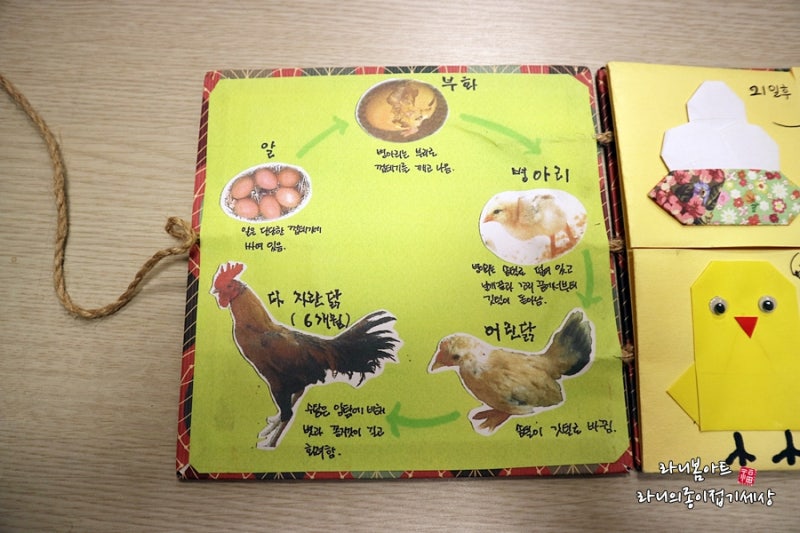 부화
병아리는 부리로
껍데기를 깨고 나옴.
알
알은 단단한 껍데기에
싸여 있음.
병아리
병아리는 솜털로 덮여 있고
날개끝과 꼬리 끝에서부터
깃털이 돋아남.
어린닭
솜털이 깃털로 바뀜.
다 자란 닭
(6개월)
수탉은 암탉에 비해
볏과 꼬리깃이 길고
화려함.
21일후
라니봄아트
라니의종이접기세상